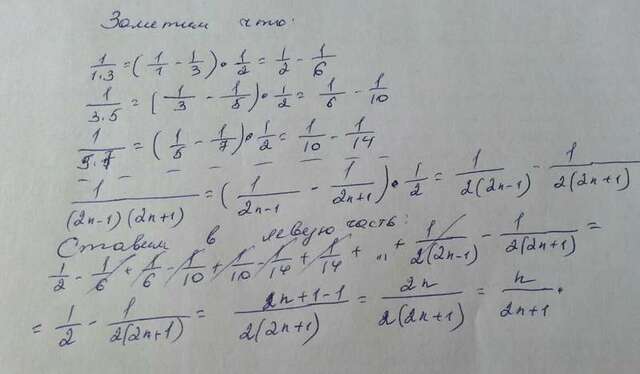 Заметим что:
1/1·3 = (1/1 - 1/3) · 1/2 = 1/2 - 1/6
1/3·5 = (1/3 - 1/5) · 1/2 = 1/6 - 1/10
1/5·7 = (1/5 - 1/7) · 1/2 = 1/10 - 1/14
1/(2n-1)(2n+1) = (1/2n-1 - 1/2n+1) · 1/2 = 1/2(2n-1) - 1/2(2n+1)
Ставим в левую часть:
1/2 - 1/6 + 1/6 - 1/10 + 1/10 - 1/14 + 1/14 + ... + 1/2(2n-1) - 1/2(2n+1) =
= 1/2 - 1/2(2n+1) = 2n+1-1/2(2n+1) = 2n/2(2n+1) = n/2n+1.